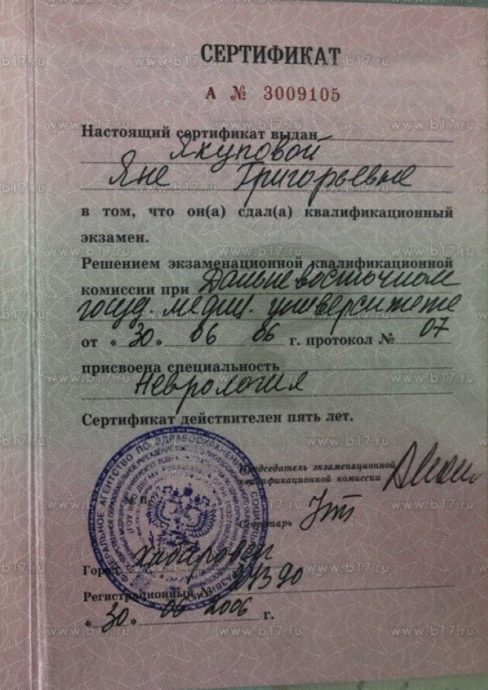 СЕРТИФИКАТ
А № 3009105
Настоящий сертификат выдан
Якуповой
Яне Григорьевне
в том, что он(а) сдал(а) квалификационный
экзамен.
Решением экзаменационной квалификационной
комиссии при Дальневосточном
госуд. медиц. университете
от « 30 » 06 06 г. протокол № 07
присвоена специальность
Неврология
Сертификат действителен пять лет.
Председатель экзаменационной
квалификационной комиссии
Секретарь
М.П.
ФЕДЕРАЛЬНОЕ АГЕНТСТВО ПО ЗДРАВООХРАНЕНИЮ
Город Хабаровск
Регистрационный №
« 30 » 06 2006 г.
www.b17.ru